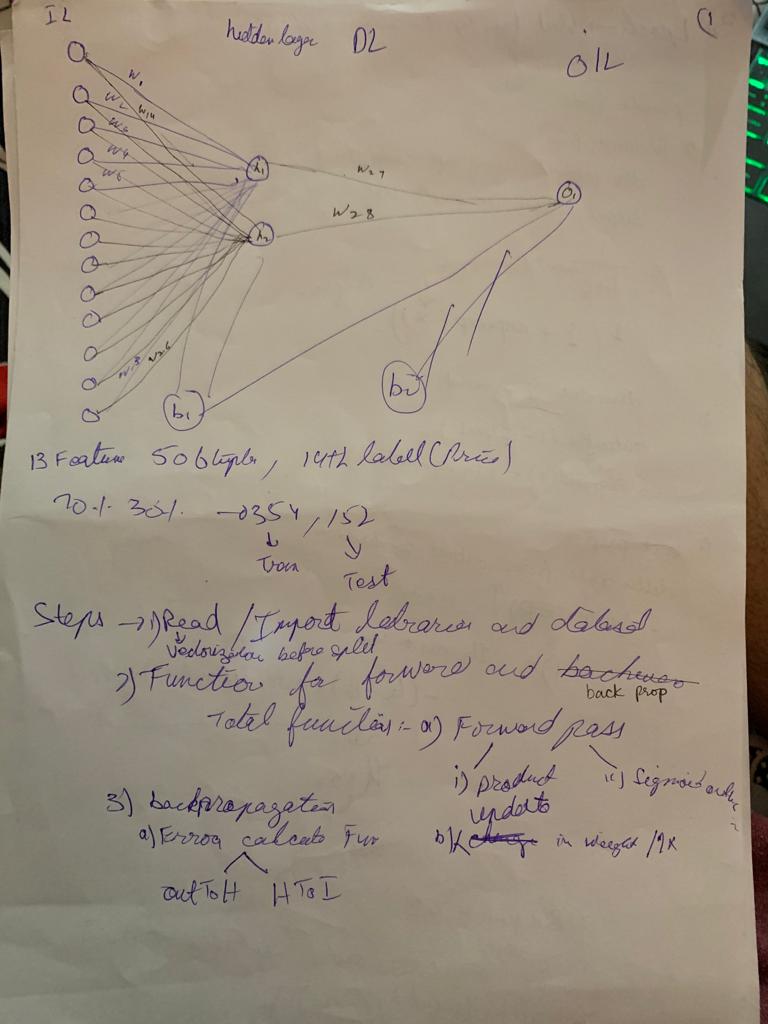 IL
hidden layer DL
O/L
(1
W1
W2 W14
W3
W4
W5
h1
W27
O1
W28
h2
W13 W26
b1
b2
13 Feature 506 tuples, 14th label (Price)
70% 30% → 354, 152
Train
Test
Steps → 1) Read / Import libraries and dataset
Vectorization before split
2) Function for forward and
back prop
Total function:- a) Forward pass
i) product
ii) Sigmoid
3) backpropagation
update
a) Error calculate Fun
b) in weight
outToH HToI